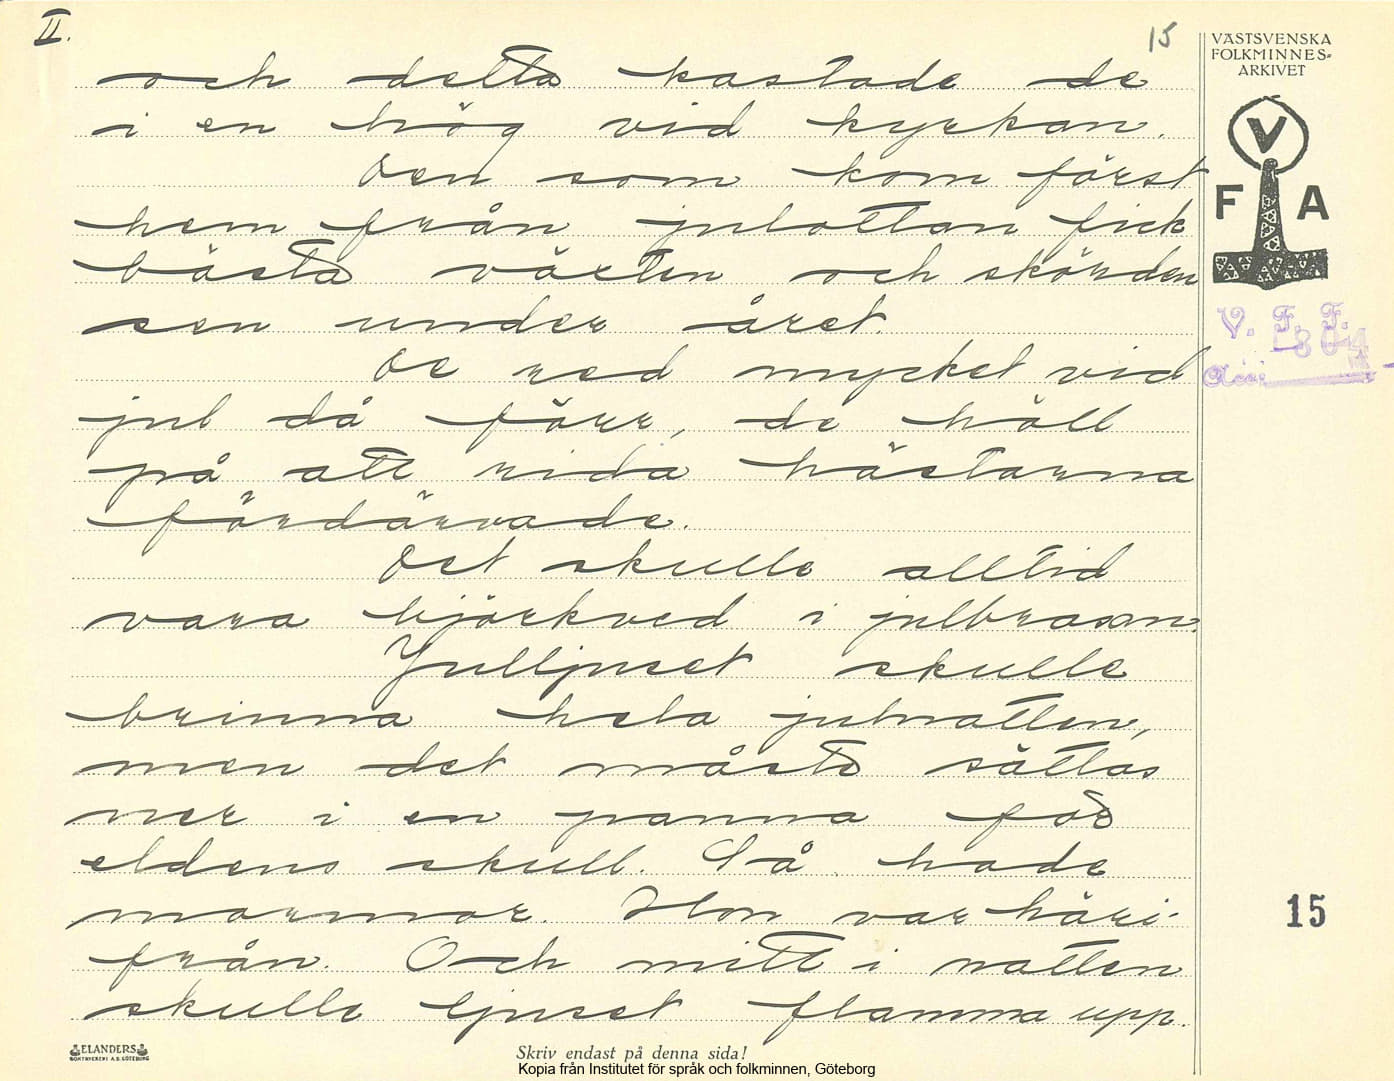 II.
15
VÄSTSVENSKA
FOLKMINNES-
ARKIVET
V
F A
V. F. F.
och detta kastade de
i en hög vid kyrkan.
Den som kom först
hem från julottan fick
bästa växten och skörden
sen under året.
De red mycket vid
jul då förr, de höll
på att rida hästarna
fördärvade.
Det skulle alltid
vara björkved i julbrasan.
Julljuset skulle
brinna hela julnatten,
men det måste sättas
ner i en panna för
eldens skull. Så hade
mormor. Hon var häri-
från. Och mitt i natten
skulle ljuset flamma upp.
15
ELANDERS
BOKTRYCKERI A.B. GÖTEBORG
Skriv endast på denna sida!
Kopia från Institutet för språk och folkminnen, Göteborg